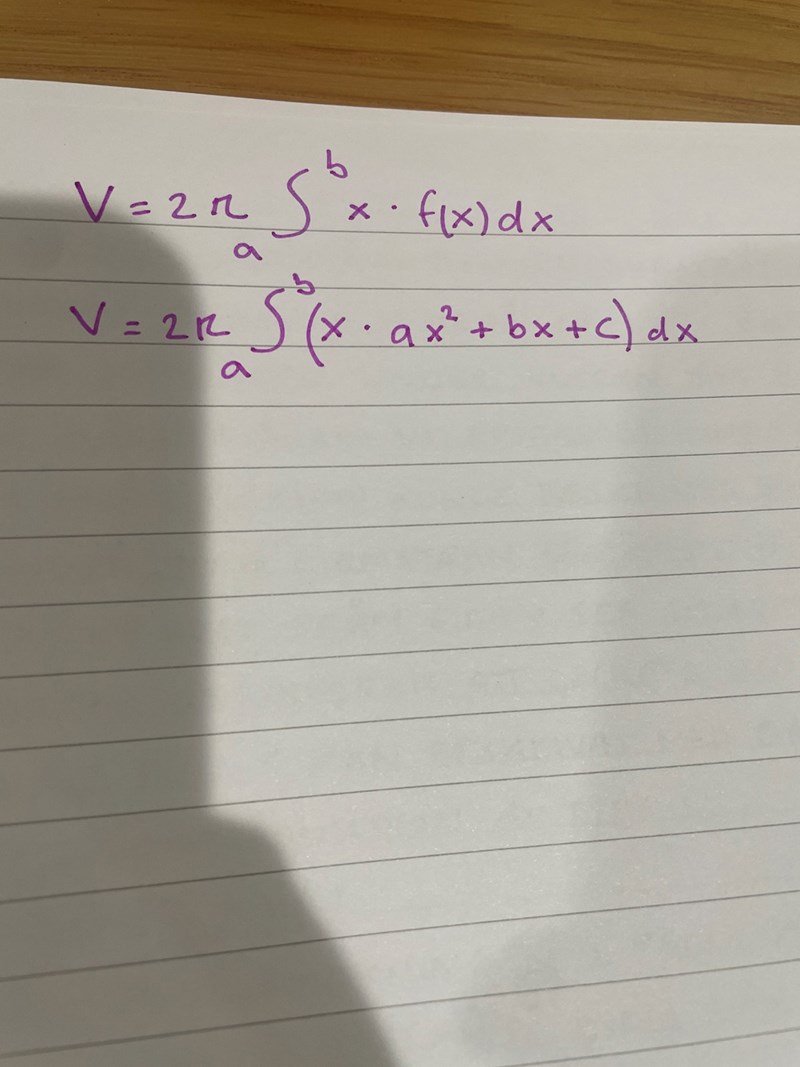 V = 2π ∫ₐᵇ x · f(x) dx
V = 2π ∫ₐᵇ (x · ax² + bx + c) dx